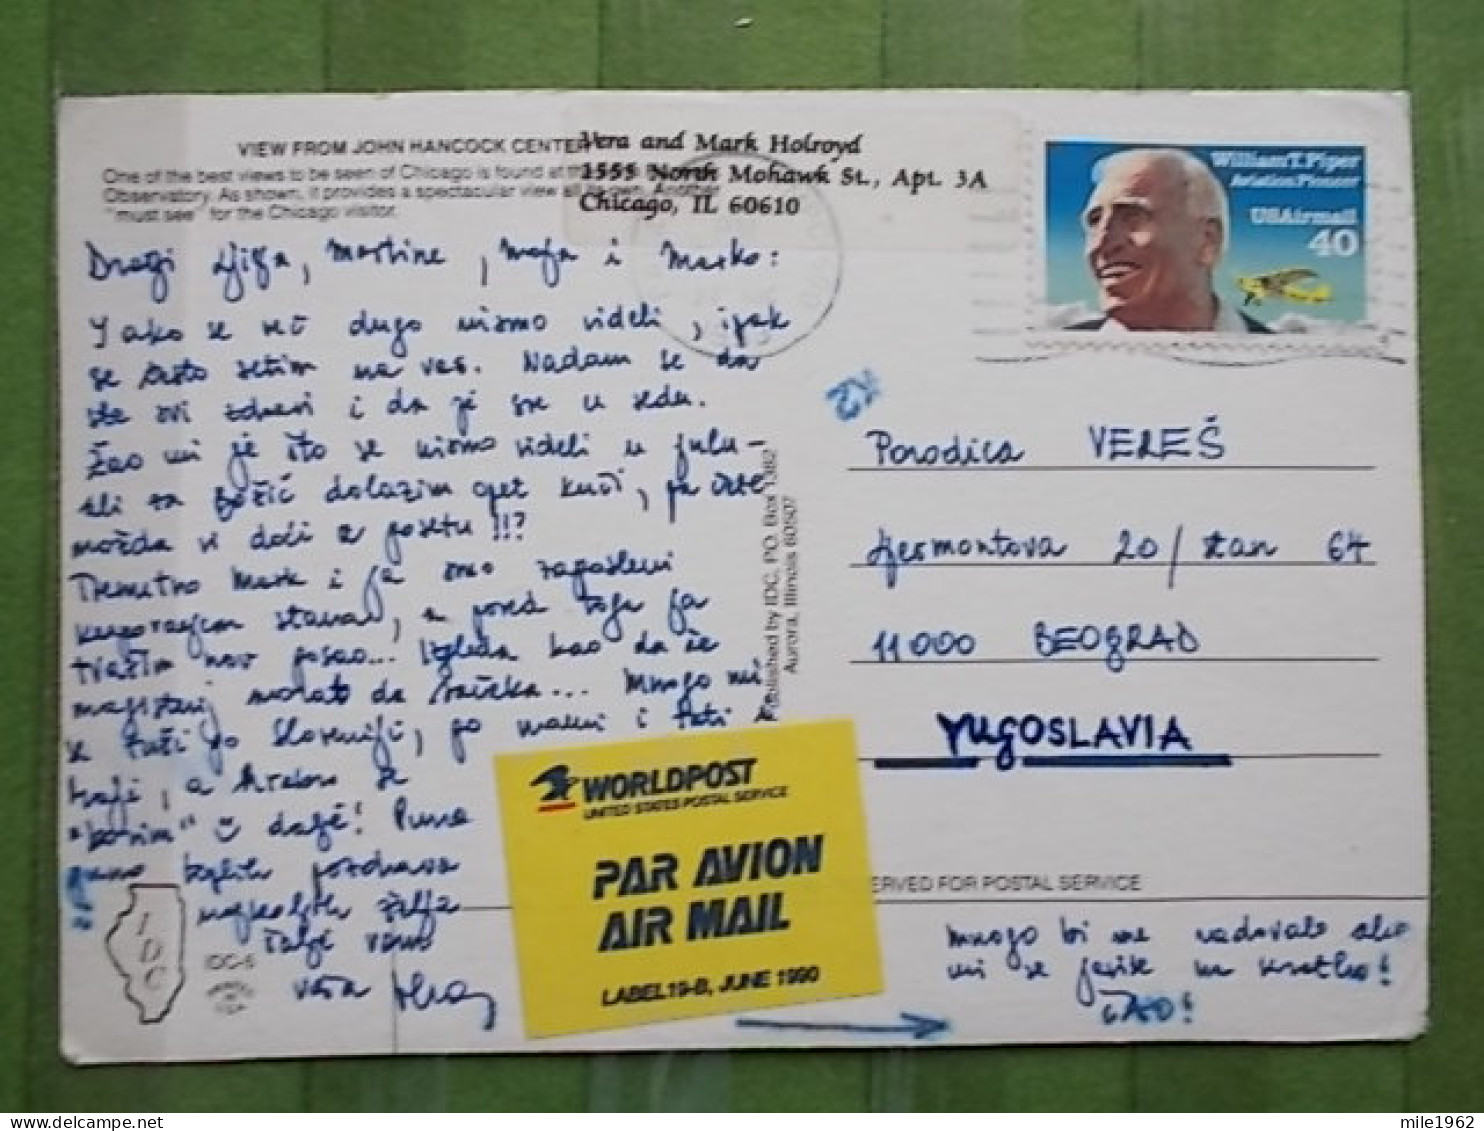 VIEW FROM JOHN HANCOCK CENTER
One of the best views to be seen of Chicago is found at the
Observatory. As shown, it provides a spectacular view all its own. Another
"must see" for the Chicago visitor.
Vera and Mark Holroyd
1555 North Mohawk St., Apt. 3A
Chicago, IL 60610
William T. Piper
Aviation Pioneer
USAirmail
40
Dragi Ljilja, Martine, Maja i Marko:
Iako se već dugo nismo videli, ipak
se često setim na vas. Nadam se da
ste svi zdravi i da je sve u redu.
Žao mi je što se nismo videli u julu -
ali za Božić dolazim opet kući, pa ćete
možda vi doći u posetu!!!?
Trenutno Mark i ja smo zaposleni
stana, a pored toga ja
tražim nov posao... Izgleda kao da će
magisterij morati da sačeka... Mnogo mi
se tuži po Sloveniji, po mami i tati
"borim" dalje! Puno
puno toplih pozdrava
najboljih želja
šalje vama
Vera
Published by IDC, P.O. Box 1382
Aurora, Illinois 60507
Porodica VEREŠ
Ljermontova 20/stan 64
11000 BEOGRAD
YUGOSLAVIA
WORLDPOST
UNITED STATES POSTAL SERVICE
PAR AVION
AIR MAIL
LABEL 19-B, JUNE 1990
ERVED FOR POSTAL SERVICE
IDC
IDC-6
Mnogo bi me radovalo ako
mi se javite na kratko!
ĆAO!
mile1962